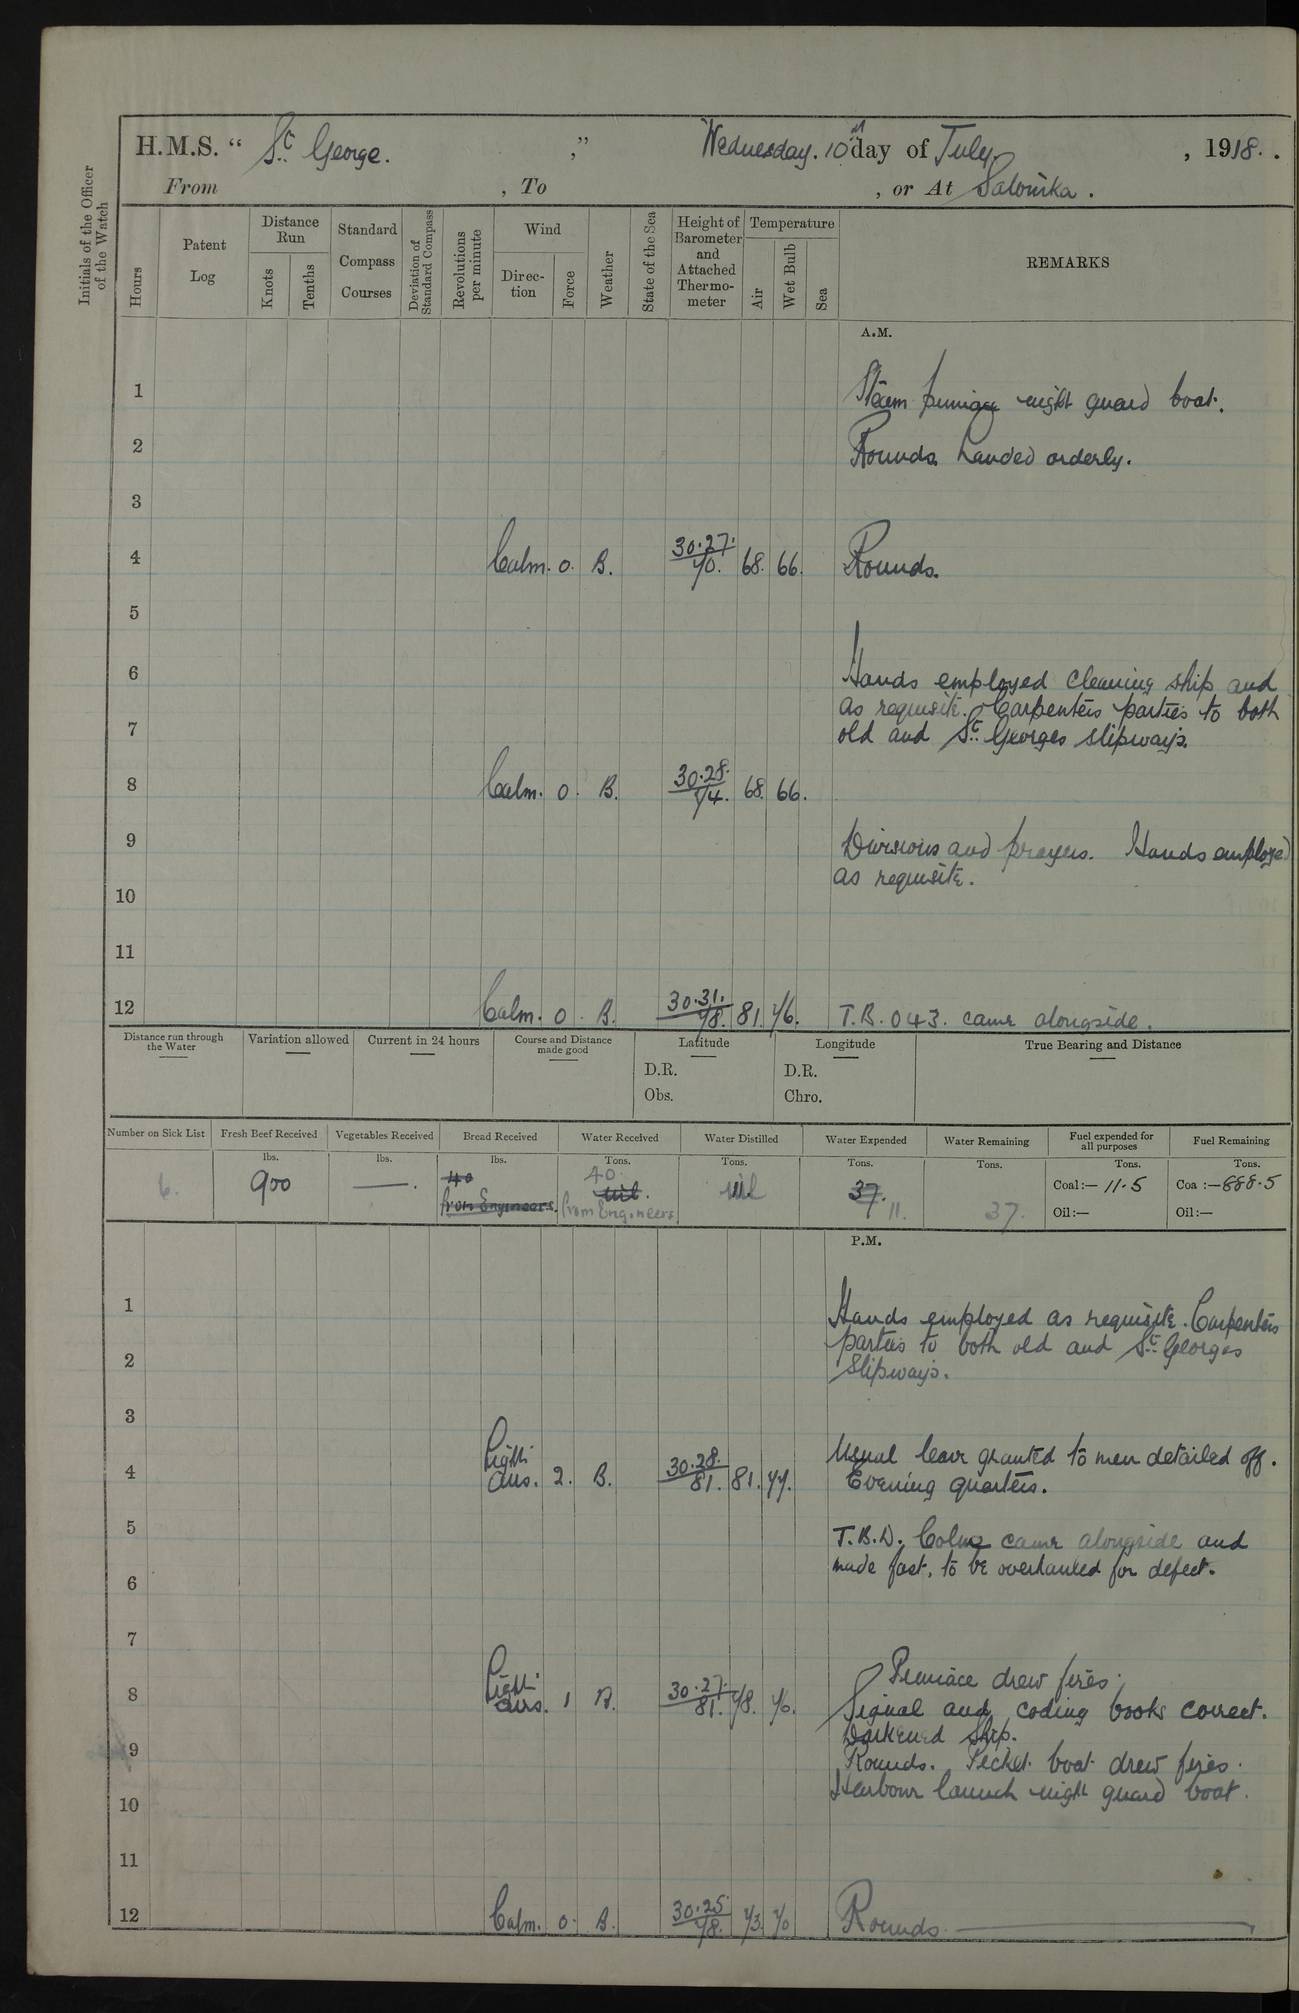 H.M.S. “ St. George. ,” Wednesday. 10th day of July. , 1918. .
From , To , or At Salonika .
Initials of the Officer of the Watch
Hours
Patent Log
Distance Run
Knots
Tenths
Standard Compass Courses
Deviation of Standard Compass
Revolutions per minute
Wind
Direc-tion
Force
Weather
State of the Sea
Height of Barometer and Attached Thermo-meter
Temperature
Air
Wet Bulb
Sea
REMARKS
A.M.
1 Steam pinnace night guard boat.
2 Rounds. Landed orderly.
3
4 Calm. 0. B. 30.27. 70. 68. 66. Rounds.
5
6 Hands employed cleaning ship and
as requisite. Carpenters parties to both
7 old and St. Georges slipways.
8 Calm. 0. B. 30.28. 74. 68. 66.
9 Divisions and prayers. Hands employed
as requisite.
10
11
12 Calm. 0. B. 30.31. 78. 81. 76. T.B. 043. came alongside.
Distance run through the Water
Variation allowed
Current in 24 hours
Course and Distance made good
Latitude
D.R.
Obs.
Longitude
D.R.
Chro.
True Bearing and Distance
Number on Sick List
6.
Fresh Beef Received
lbs.
900
Vegetables Received
lbs.
—.
Bread Received
lbs.
40
from Engineers.
Water Received
Tons.
40
nil.
from Engineers
Water Distilled
Tons.
nil
Water Expended
Tons.
37.
11.
Water Remaining
Tons.
37.
Fuel expended for all purposes
Tons.
Coal:— 11.5
Oil:—
Fuel Remaining
Tons.
Coa :—888.5
Oil:—
P.M.
1 Hands employed as requisite. Carpenters
parties to both old and St. Georges
2 Slipways.
3
Usual leave granted to men detailed off.
4 Light airs. 2. B. 30.28. 81. 81. 77. Evening quarters.
5 T.B.D. Colne came alongside and
made fast, to be overhauled for defect.
6
7
Pinnace drew fires.
8 Light airs. 1 B. 30.27. 81. 78. 70. Signal and coding books correct.
Darkened Ship.
9 Rounds. Picket boat drew fires.
10 Harbour launch night guard boat.
11
12 Calm. 0. B. 30.25 78. 73. 70 Rounds.